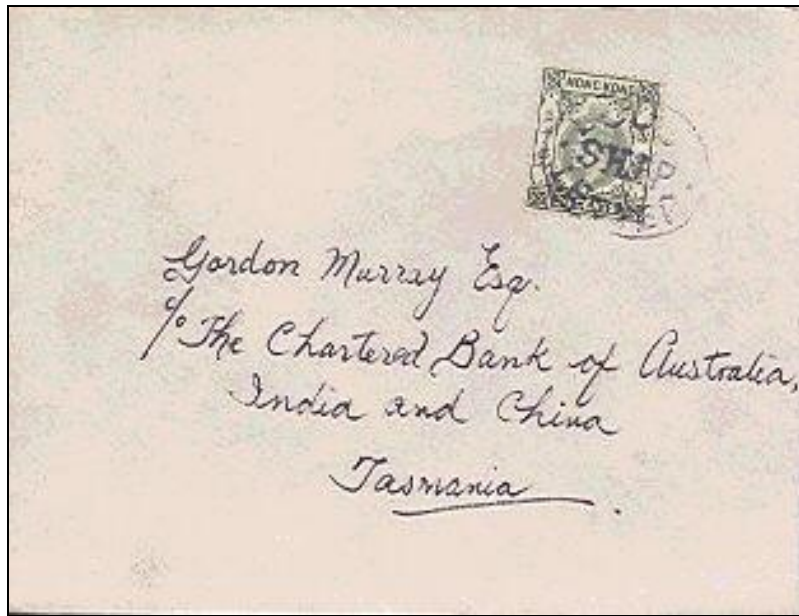 HONG KONG
SHIP
Gordon Murray Esq.
c/o The Chartered Bank of Australia,
India and China
Tasmania.